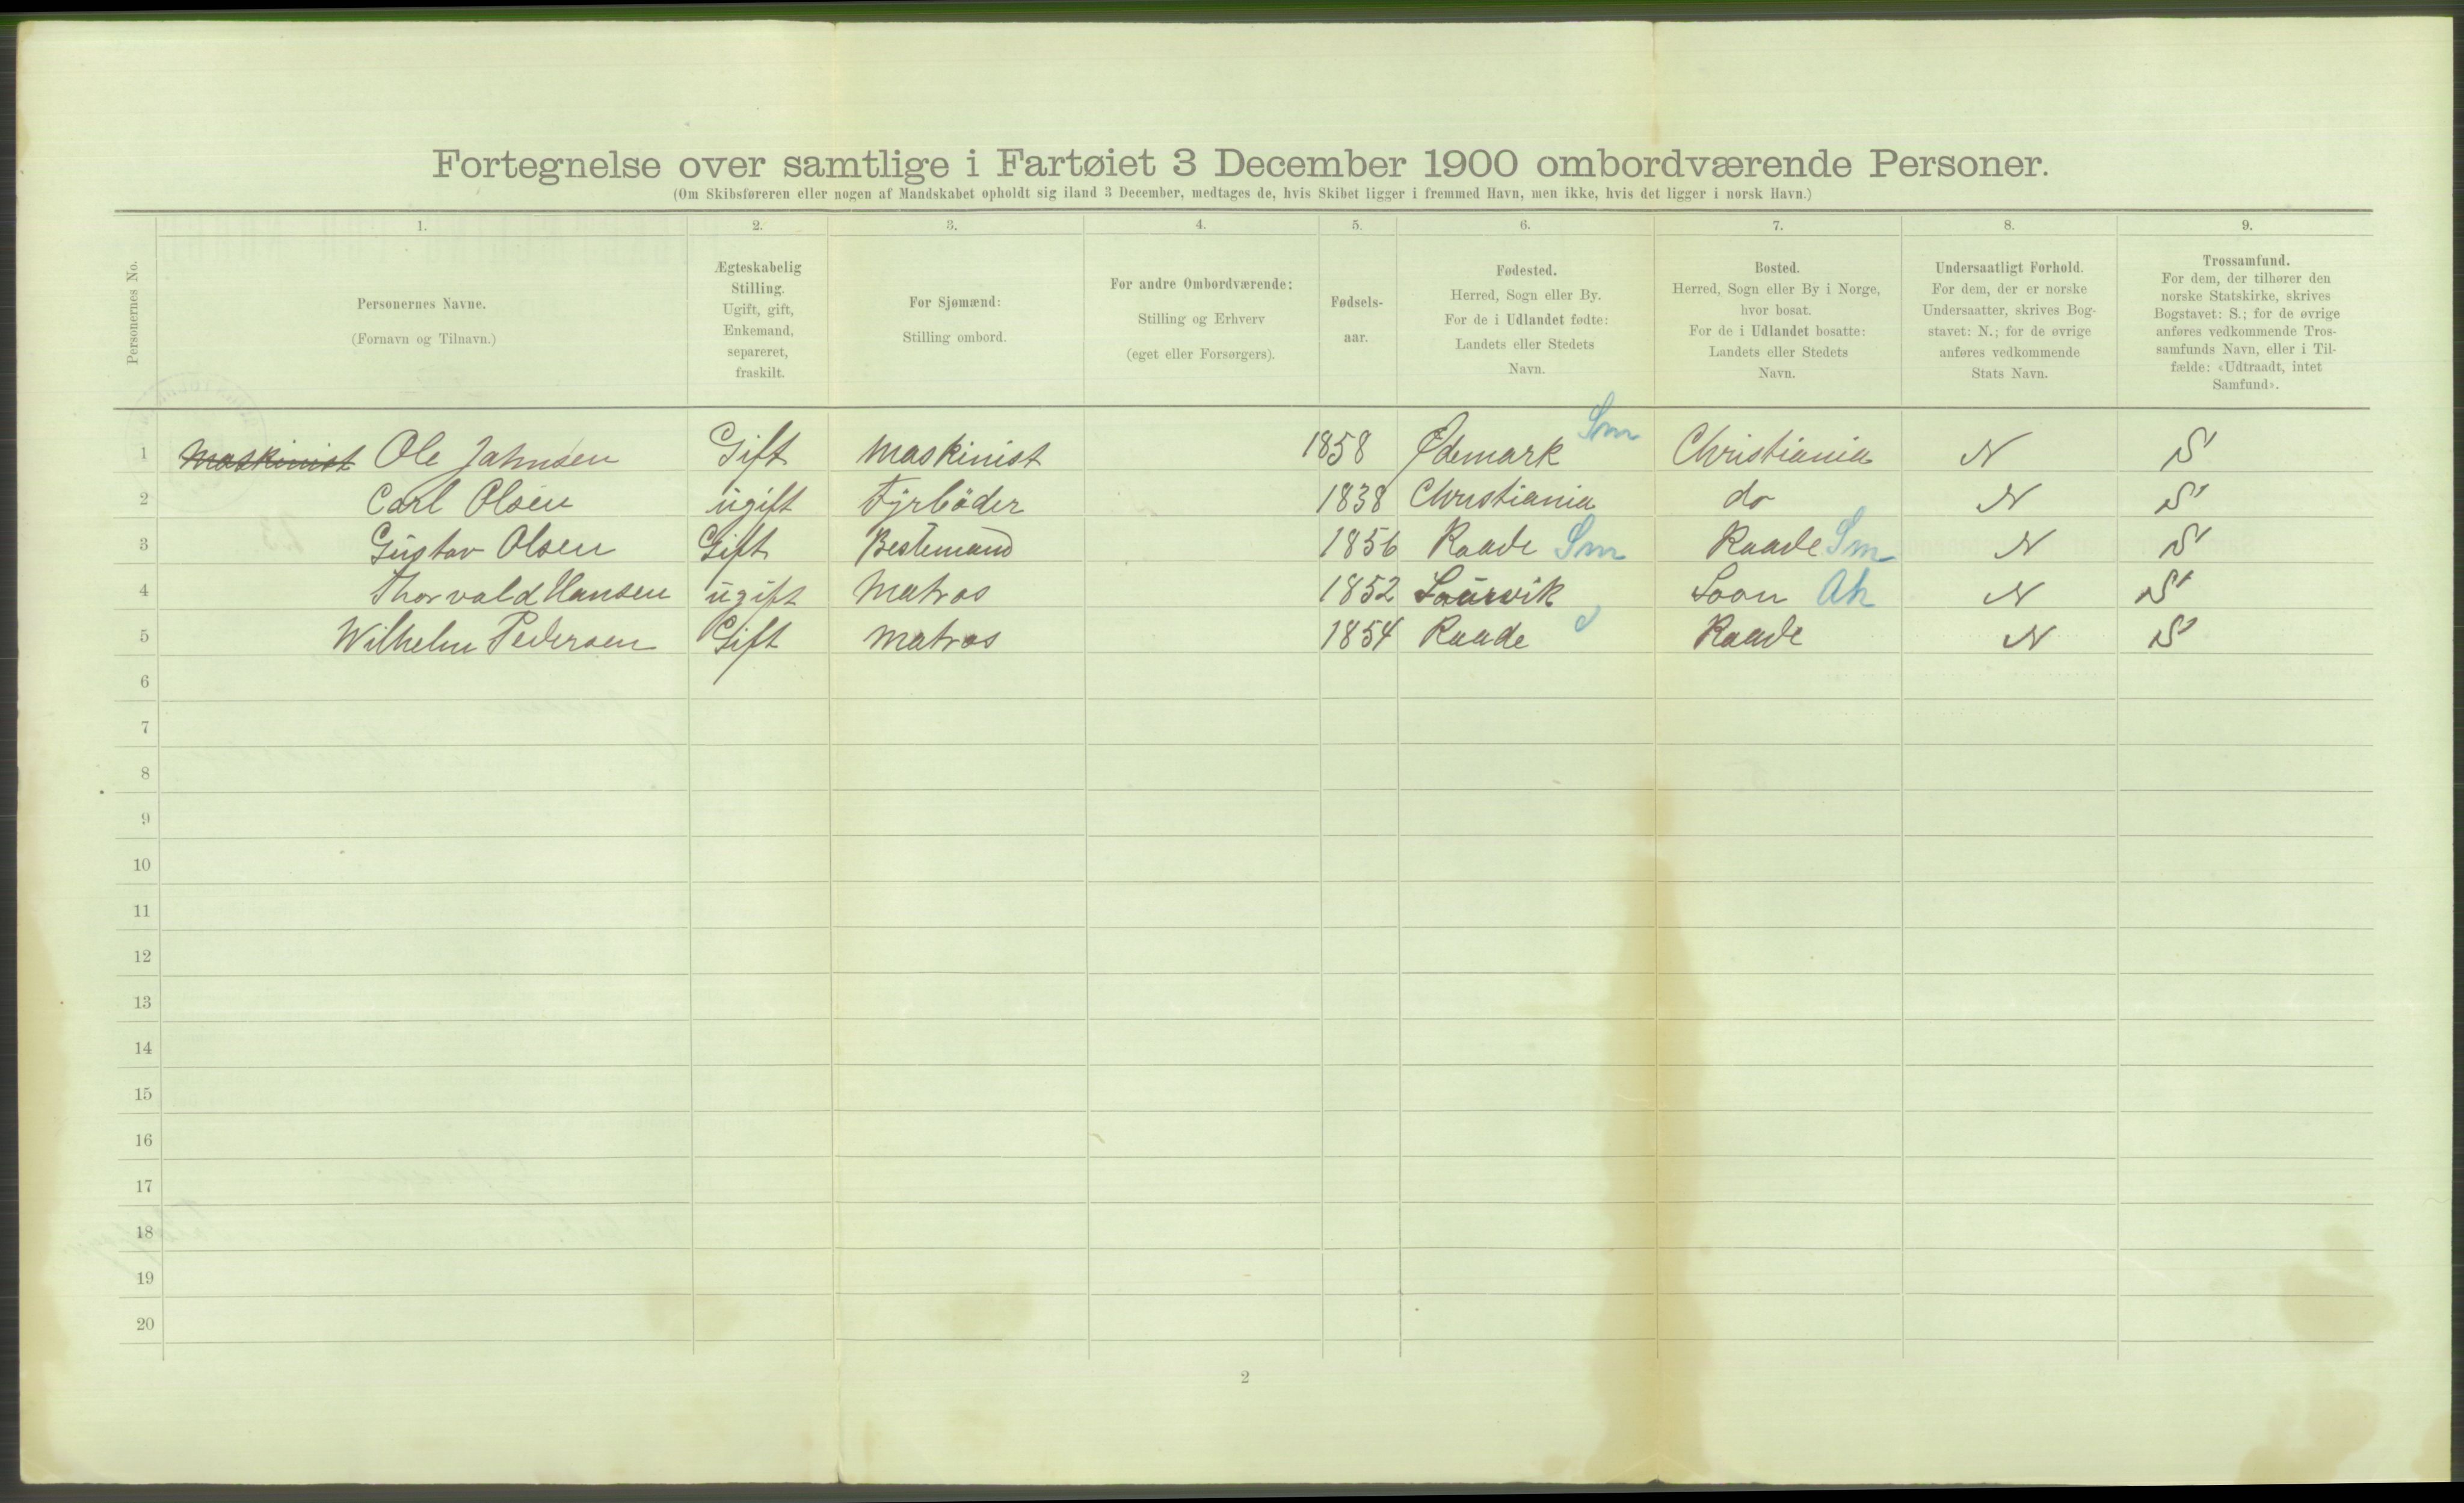 Fortegnelse over samtlige i Fartøiet 3 December 1900 ombordværende Personer.
(Om Skibsføreren eller nogen af Mandskabet opholdt sig iland 3 December, medtages de, hvis Skibet ligger i fremmed Havn, men ikke, hvis det ligger i norsk Havn.)
Personernes No.
1. 2. 3. 4. 5. 6. 7. 8. 9.
Personernes Navne.
(Fornavn og Tilnavn.)
Ægteskabelig
Stilling.
Ugift, gift,
Enkemand,
separeret,
fraskilt.
For Sjømænd:
Stilling ombord.
For andre Ombordværende:
Stilling og Erhverv
(eget eller Forsørgers).
Fødsels-
aar.
Fødested.
Herred, Sogn eller By.
For de i Udlandet fødte:
Landets eller Stedets
Navn.
Bosted.
Herred, Sogn eller By i Norge,
hvor bosat.
For de i Udlandet bosatte:
Landets eller Stedets
Navn.
Undersaatligt Forhold.
For dem, der er norske
Undersaatter, skrives Bog-
stavet: N.; for de øvrige
anføres vedkommende
Stats Navn.
Trossamfund.
For dem, der tilhører den
norske Statskirke, skrives
Bogstavet: S.; for de øvrige
anføres vedkommende Tros-
samfunds Navn, eller i Til-
fælde: «Udtraadt, intet
Samfund».
1 Maskinist Ole Jahnsen Gift Maskinist 1858 Ødemark Sm Christiania N S
2 Carl Olsen ugift Fyrböder 1838 Christiania do N S
3 Gustav Olsen Gift Bestemand 1856 Raade Sm Raade Sm N S
4 Thorvald Hansen ugift Matros 1852 Laurvik Soon Ak N S
5 Wilhelm Pedersen Gift Matros 1854 Raade Raade N S
6
7
8
9
10
11
12
13
14
15
16
17
18
19
20
2